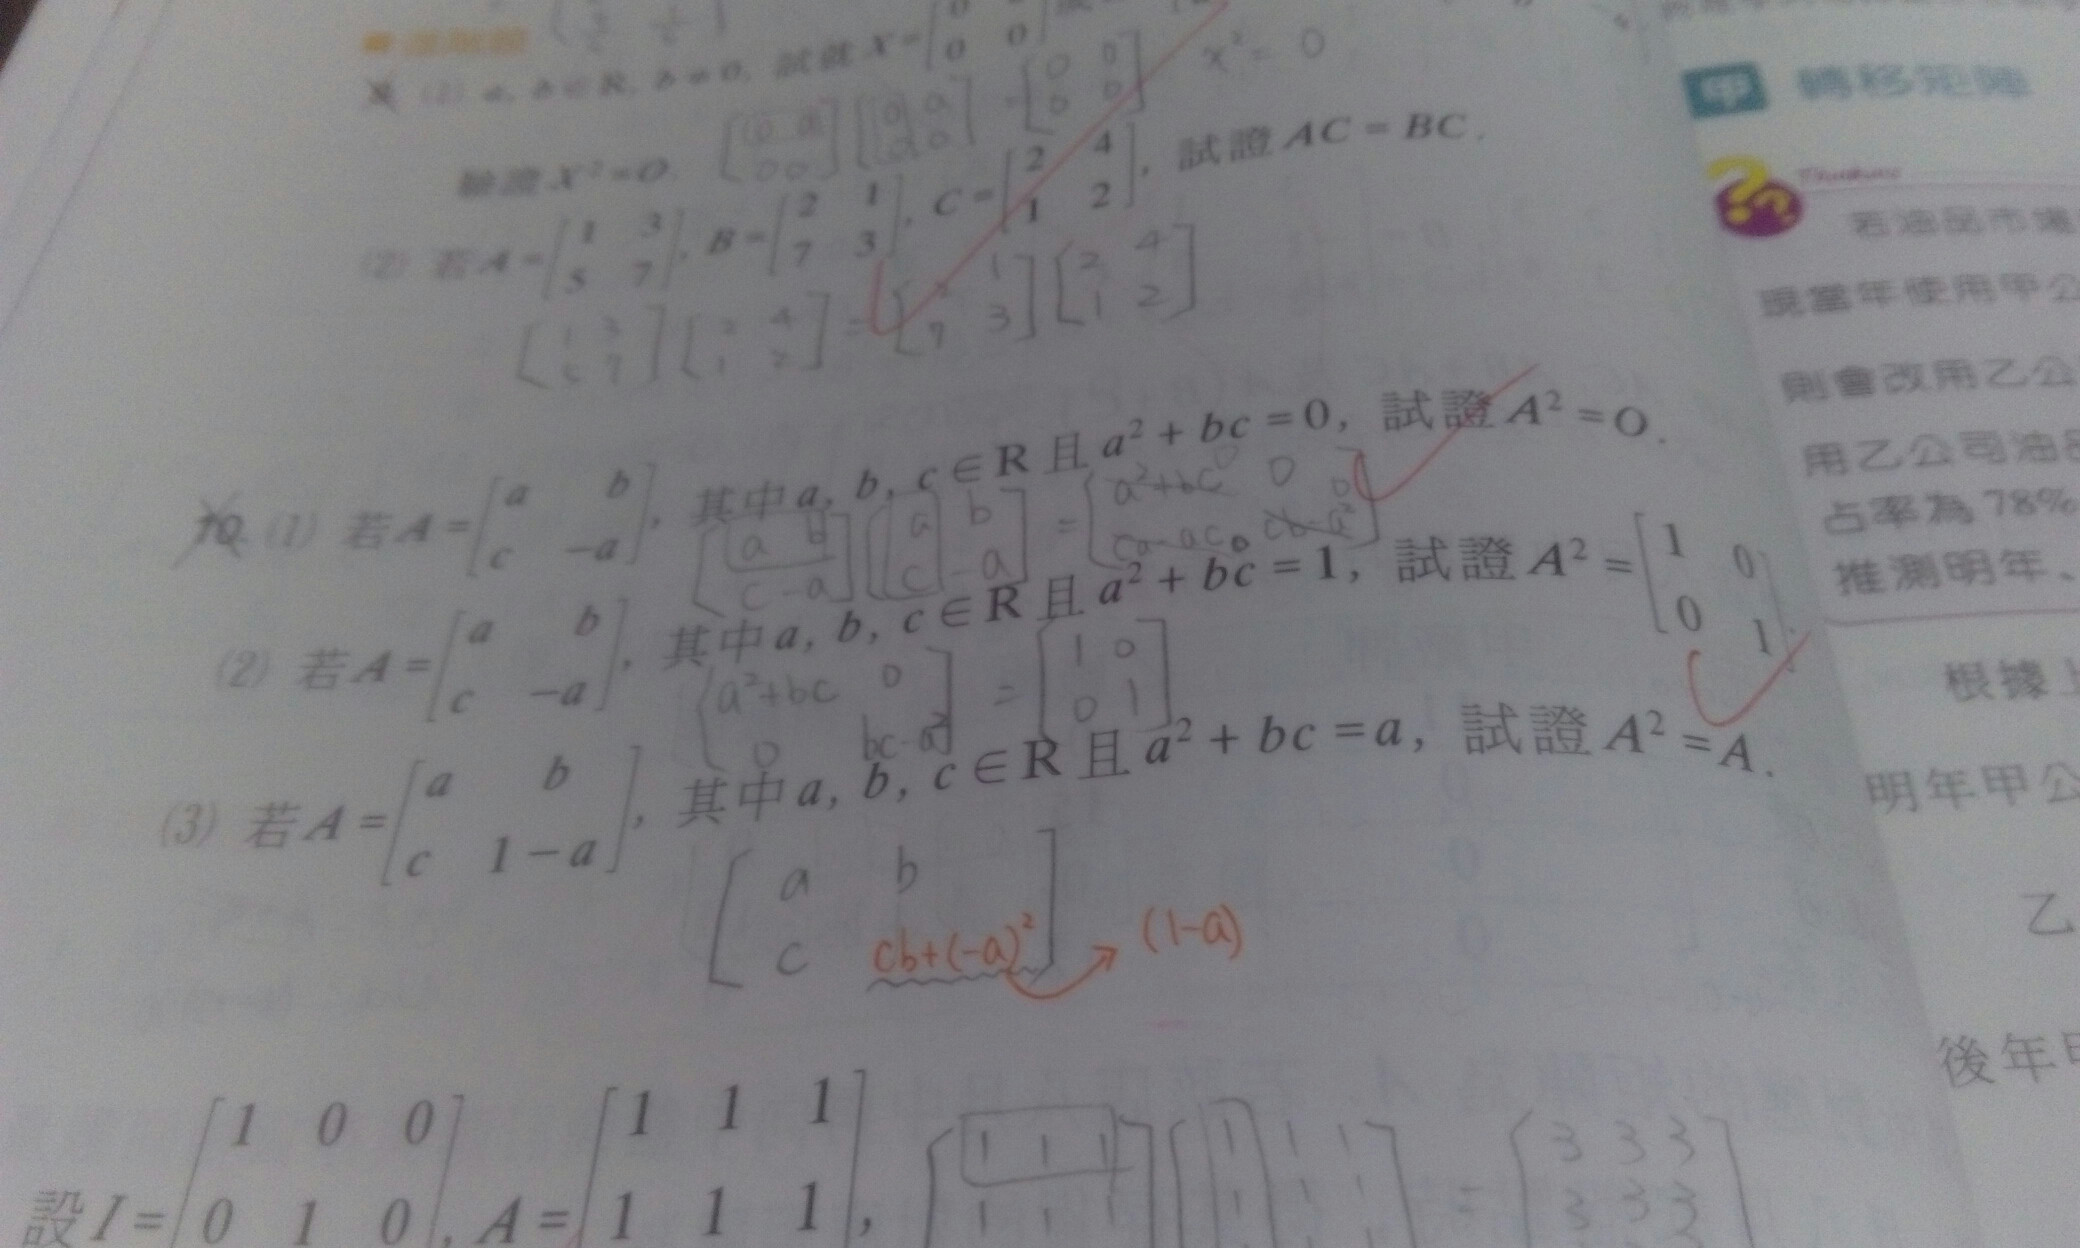 (1) a, b∈R, b≠0, 試就 X=[
0 0
驗證 X²=O.
x² = 0
[0 0
0 0]
(2) 若 A=[1 3
5 7], B=[2 1
7 3], C=[2 4
1 2], 試證 AC = BC.
[1 3
7] [2 4
1 2] = [ 1
7 3] [2 4
1 2]
10. (1) 若 A=[a b
c −a], 其中 a, b, c∈R 且 a² + bc = 0, 試證 A² = O.
[a b
c -a] [a b
c -a] = [a²+bc 0
ca-ac cb-a²]
0 0 0
(2) 若 A=[a b
c −a], 其中 a, b, c∈R 且 a² + bc = 1, 試證 A² = [1 0
0 1].
[a²+bc 0
0 bc-a²] = [1 0
0 1]
(3) 若 A=[a b
c 1−a], 其中 a, b, c∈R 且 a² + bc = a, 試證 A² = A.
[a b
c cb+(-a)²] → (1-a)
設 I=[1 0 0
0 1 0, A=[1 1 1
1 1 1,
[1 1 1
1 1 1 [1 1 1
1 1 1 = [3 3 3
3 3 3
甲 轉移矩陣
Thinking
若油品市場
現當年使用甲公
則會改用乙公
用乙公司油品
占率為 78%
推測明年、
根據上
明年甲公
乙
後年甲